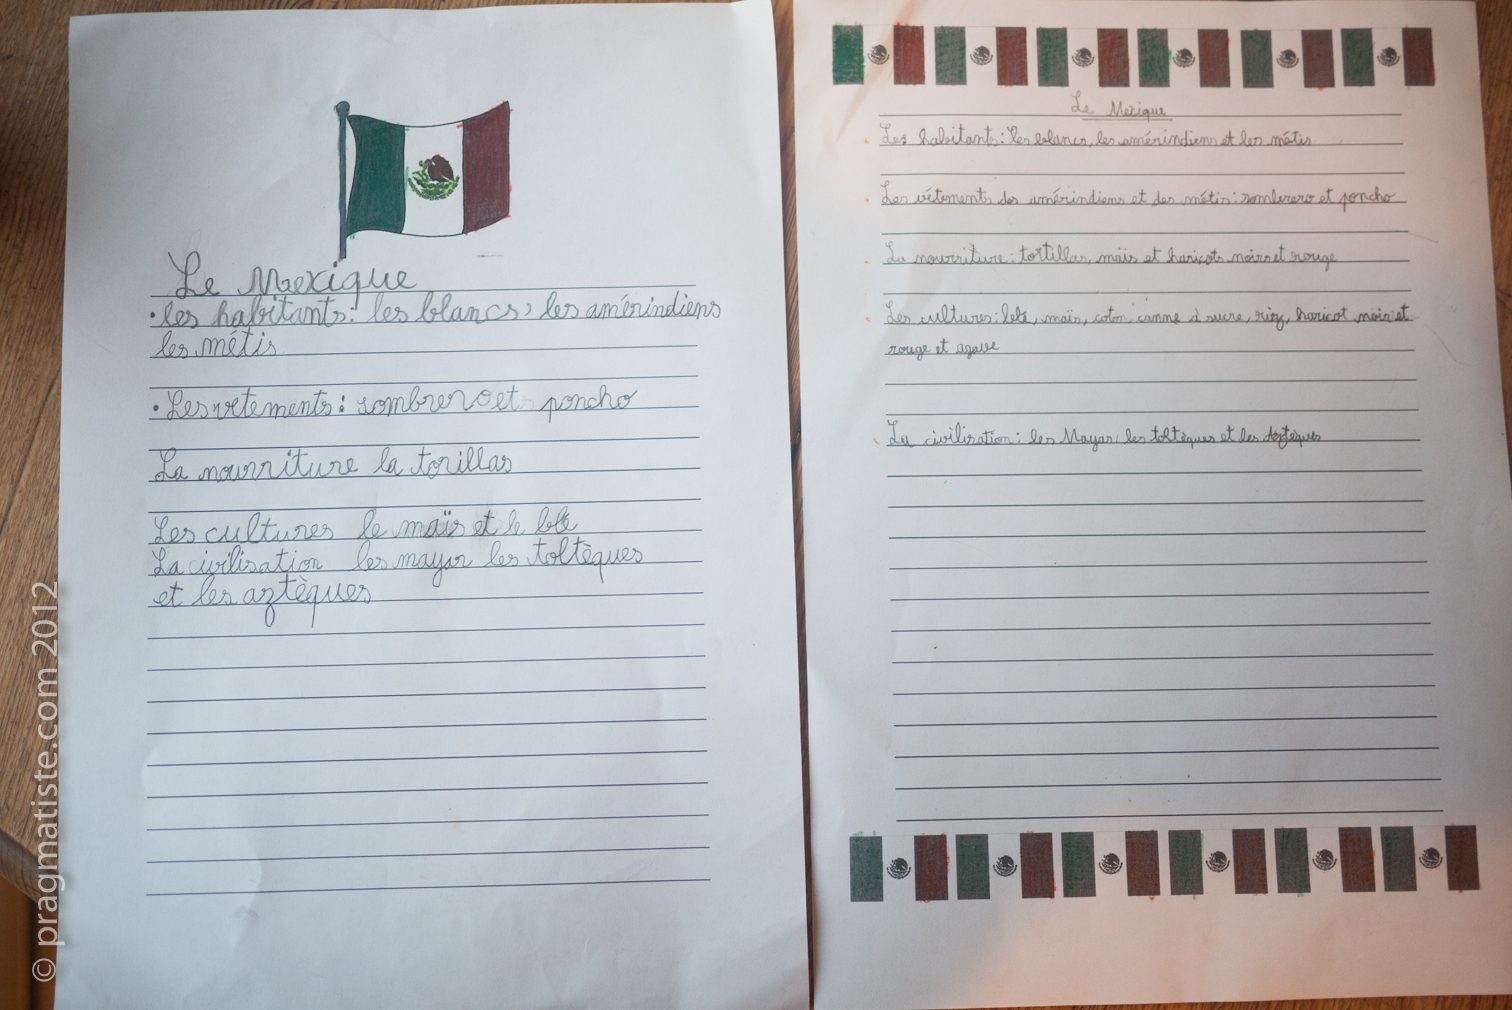 Le Mexique
• les habitants: les blancs, les amérindiens
les métis
• Les vetements: sombrero et poncho
La nourriture la torillas
Les cultures le maïs et le blé
La civilisation les mayas les toltèques
et les aztèques
Le Mexique
Les habitants: les blancs, les amérindiens et les métis
Les vétements des amérindiens et des métis: sombrero et poncho
La nourriture: tortillas, maïs et haricots noirs et rouge
Les cultures: blé, maïs, coton, canne à sucre, riz, haricot noir et
rouge et agave
La civilisation: les Mayas, les toltèques et les Aztèques
© pragmatiste.com 2012